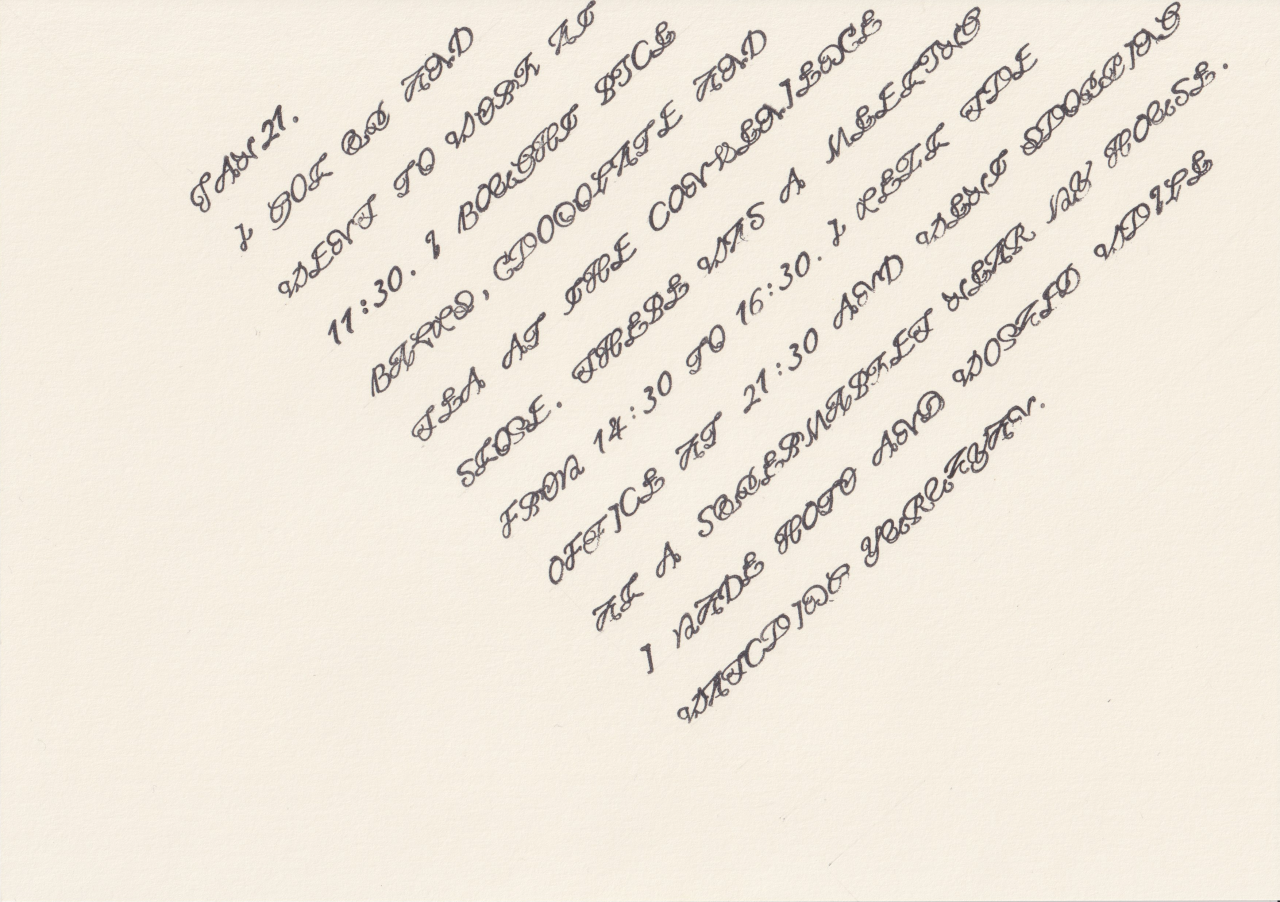 JAN 21.
I GOT UP AND
WENT TO WORK AT
11:30. I BOUGHT RICE
BALLS, CHOCOLATE AND
TEA AT THE CONVENIENCE
STORE. THERE WAS A MEETING
FROM 14:30 TO 16:30. I LEFT THE
OFFICE AT 21:30 AND WENT SHOPPING
AT A SUPERMARKET NEAR MY HOUSE.
I MADE AND WORKED WHILE
WATCHING YURUKYAN.